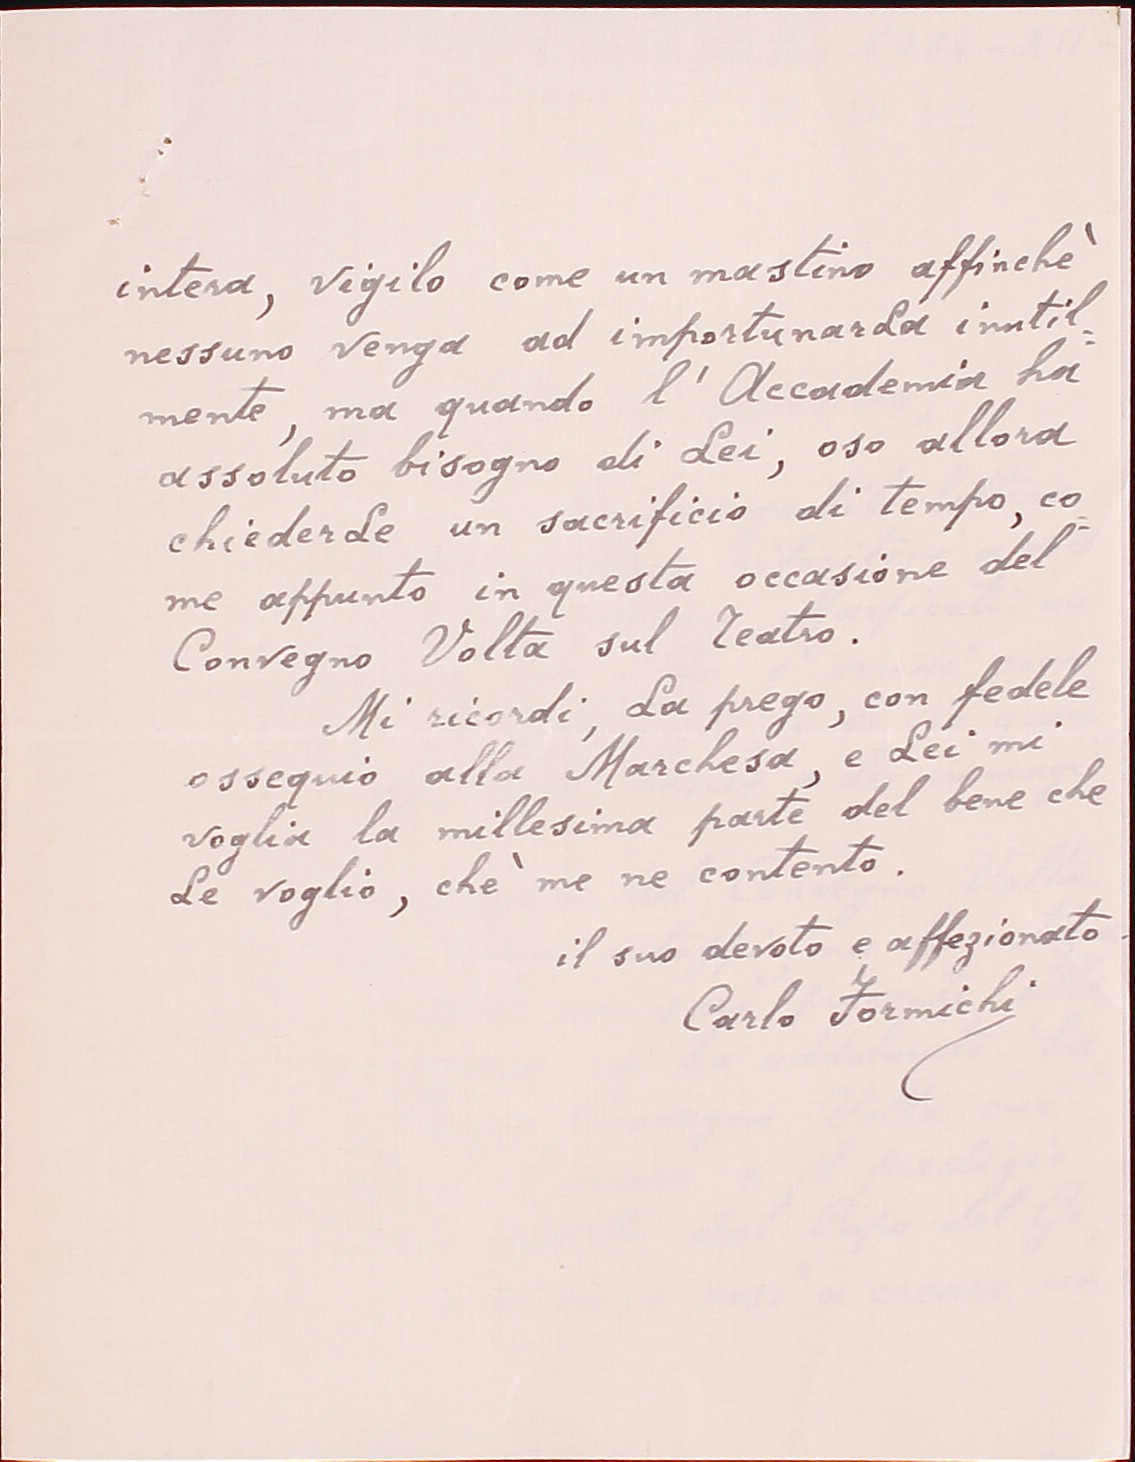 intera, vigilo come un mastino affinchè
nessuno venga ad importunarLa inutil-
mente, ma quando l'Accademia ha
assoluto bisogno di Lei, oso allora
chiederLe un sacrificio di tempo, co-
me appunto in questa occasione del
Convegno Volta sul Teatro.
Mi ricordi, La prego, con fedele
ossequio alla Marchesa, e Lei mi
voglia la millesima parte del bene che
Le voglio, chè me ne contento.
il suo devoto e affezionato
Carlo Formichi